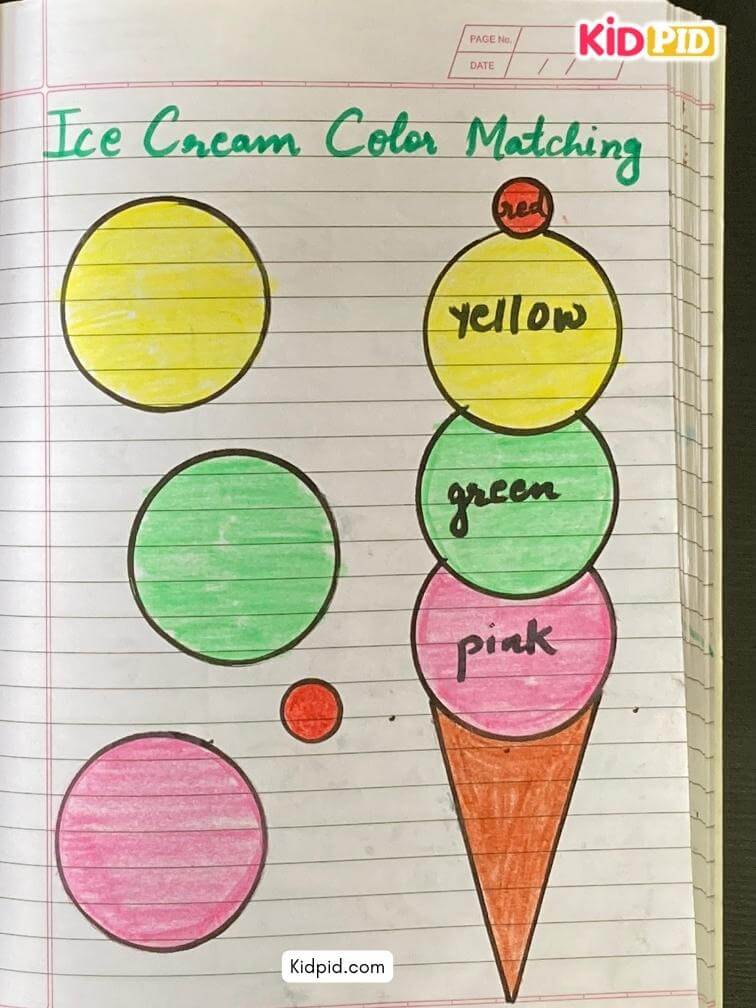 PAGE No.
DATE / /
KIDPID
Ice Cream Color Matching
red
yellow
green
pink
Kidpid.com